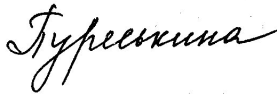 Пуреськина